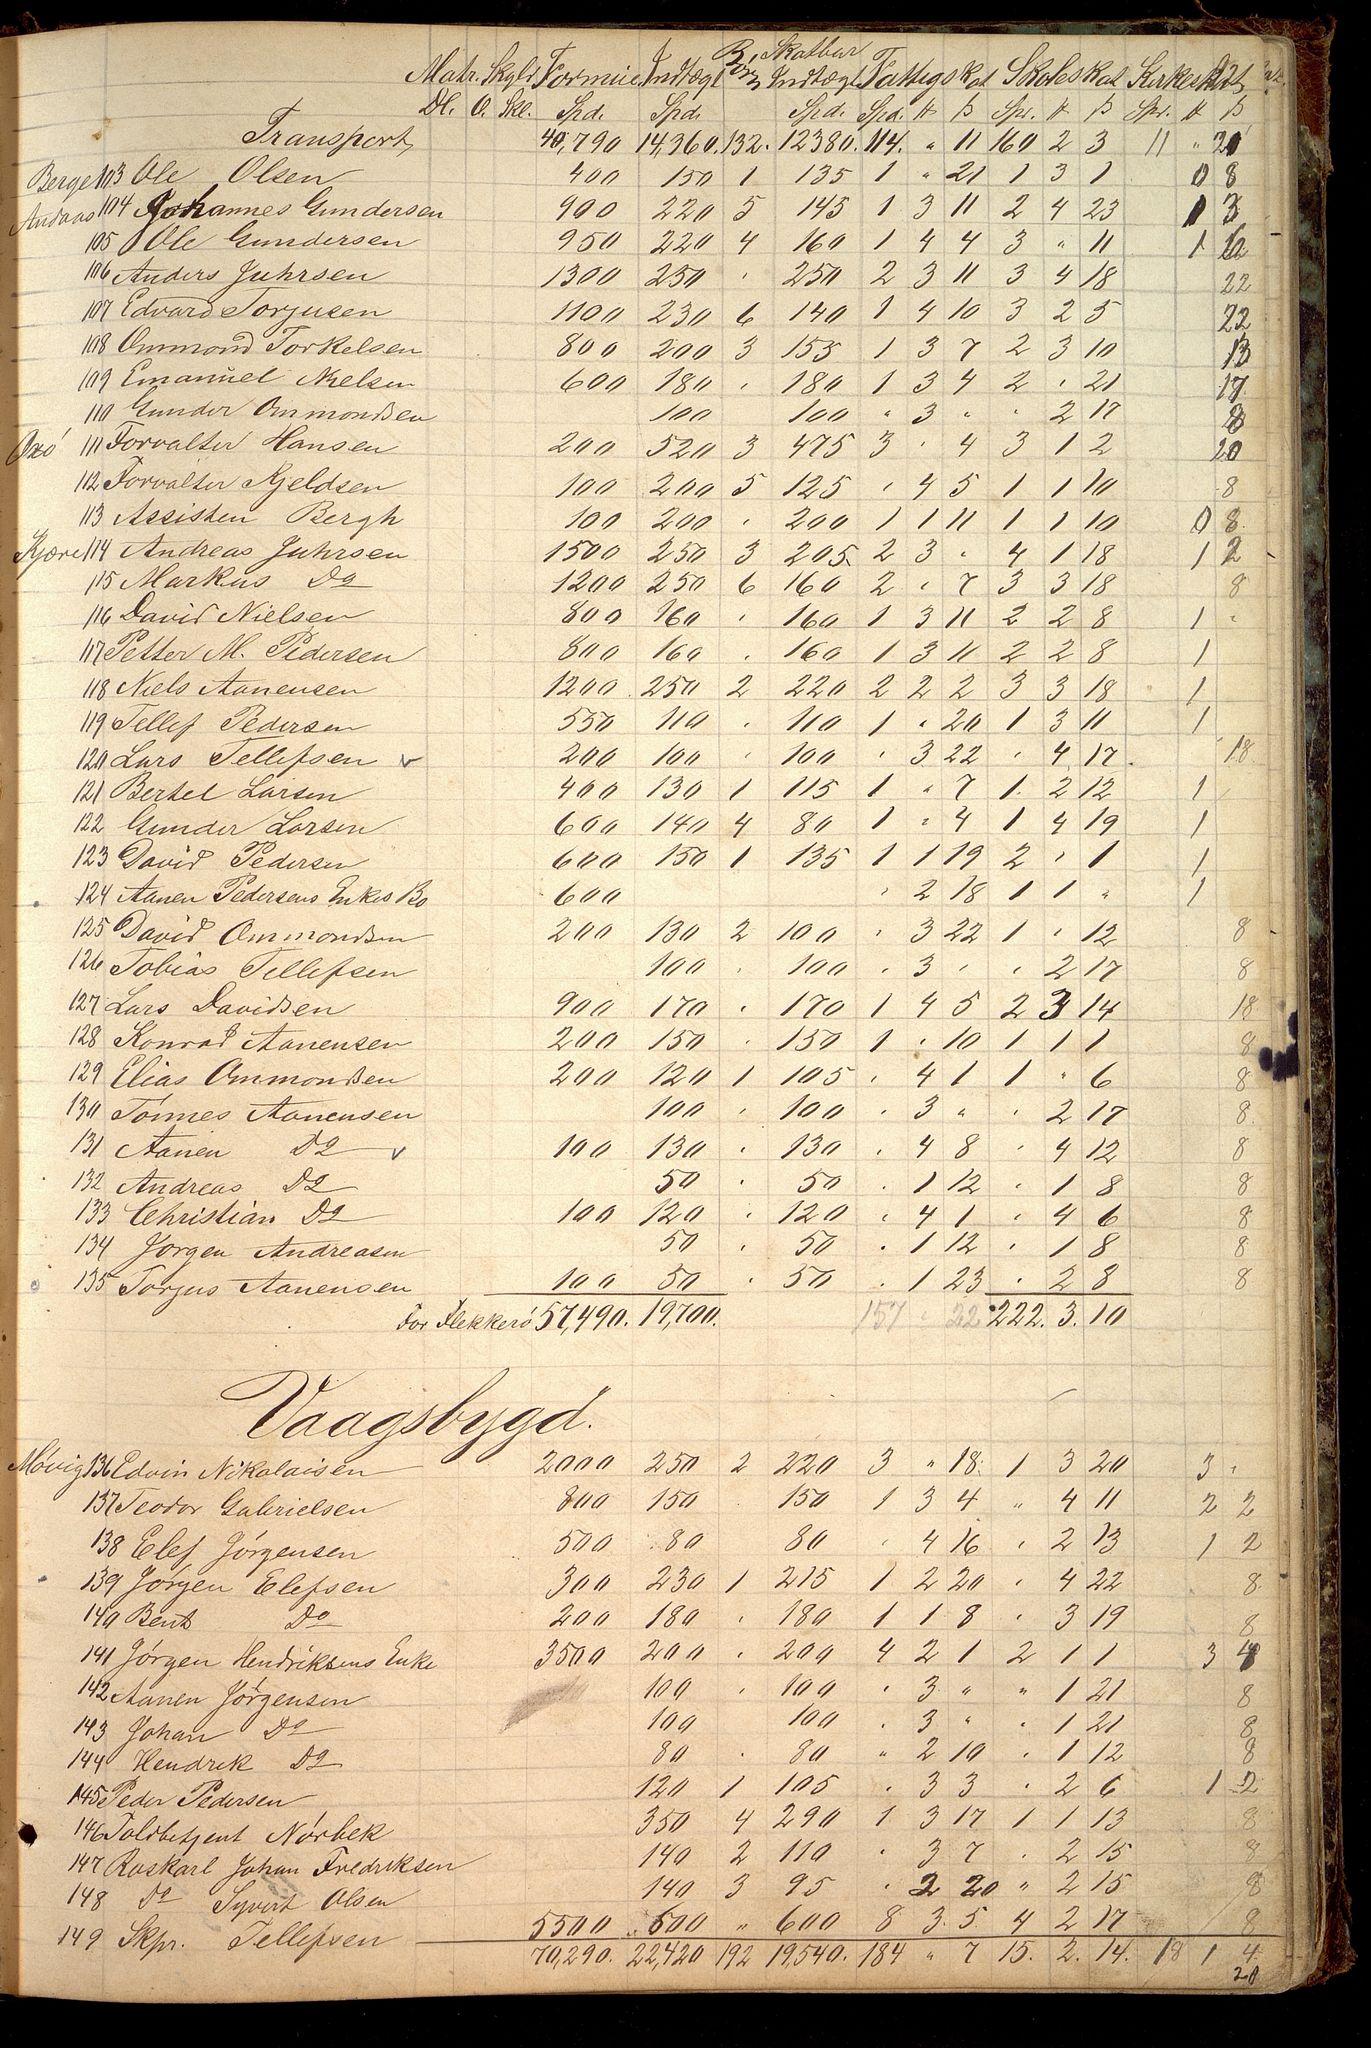 Matr. Skyld Formue Indtægt Børn Skatbar Indtægt Fattigskat Skoleskat Kirkeskat
Dl. O. Skl. Spd. Spd. Spd. Spd. # ß Spr. # ß Spr. # ß
Transport 40,790 14,360. 132. 12380. 114. " 11 160 2 3 11 "
Berge 103 Ole Olsen 400 150 1 135 1 " 21 1 3 1 0 8
Andaas 104 Johannes Gundersen 900 220 5 145 1 3 11 2 4 23 1 3
105 Ole Gundersen 950 220 4 160 1 4 4 3 " 11 1
106 Anders Juhrsen 1300 250 . 250 2 3 11 3 4 18 22
107 Edvard Torjusen 1100 230 6 140 1 4 10 3 2 5 22
108 Ommond Torkelsen 800 200 3 155 1 3 7 2 3 10 13
109 Emanuel Nielsen 600 180 . 180 1 3 4 2 . 21 17
110 Gunder Ommondsen 100 100 " 3 " . 2 17 8
Oxö 111 Forvalter Hansen 200 520 3 475 3 . 4 3 1 2 20
112 Forvalter Kjeldsen 100 200 5 125 . 4 5 1 1 10 8
113 Assisten Bergh 100 200 . 200 1 1 11 1 1 10 0 8
Kjære 114 Andreas Juhrsen 1500 250 3 205 2 3 . 4 1 18 1 2
115 Markus Do 1200 250 6 160 2 . 7 3 3 18 8
116 David Nielsen 800 160 . 160 1 3 11 2 2 8 1 .
117 Petter M. Pedersen 800 160 . 160 1 3 11 2 2 8 1
118 Niels Aanensen 1200 250 2 220 2 2 2 3 3 18 1
119 Tellef Pedersen 550 110 . 110 1 . 20 1 3 11 1
120 Lars Tellefsen v 200 100 . 100 . 3 22 . 4 17 18
121 Bertel Larsen 400 130 1 115 1 " 7 1 2 12 1
122 Gunder Larsen 600 140 4 80 1 " 4 1 4 19 1
123 David Pedersen 600 150 1 135 1 1 19 2 . 1 1
124 Aanen Pedersens Enkes Bo 600 . 2 18 1 1 " 1
125 David Ommondsen 200 130 2 100 . 3 22 1 . 12 8
126 Tobias Tellefsen 100 . 100 . 3 . . 2 17 8
127 Lars Davidsen 900 170 . 170 1 4 5 2 3 14 18
128 Konrad Aanensen 200 150 . 150 1 . 10 1 1 1 8
129 Elias Ommondsen 200 120 1 105 . 4 1 1 " 6 8
130 Tönnes Aanensen 100 . 100 . 3 " . 2 17 8
131 Aanen Do v 100 130 . 130 . 4 8 . 4 12 8
132 Andreas Do 50 . 50 . 1 12 . 1 8 8
133 Christian Do 100 120 . 120 . 4 1 . 4 6 8
134 Jorgen Andreasen 50 . 50 . 1 12 . 1 8 8
135 Torjus Aanensen 100 50 . 50 . 1 23 . 2 8 8
For Flekkerö 57,490. 19,700. 157 . 22 222. 3. 10
Vaagsbygd.
Móvig 136 Edvin Nikolaisen 2000 250 2 220 3 " 18 1 3 20 3 .
137 Teodor Gabrielsen 800 150 150 1 3 4 " 4 11 2 2
138 Elef Jørgensen 500 80 80 . 4 16 . 2 13 1 2
139 Jórgen Elefsen 300 230 1 215 1 2 20 . 4 22 8
140 Bent Do 200 180 . 180 1 1 8 . 3 19 8
141 Jörgen Hendriksens Enke 3500 200 . 200 4 2 1 2 1 1 3 4
142 Aanen Jörgensen 100 . 100 . 3 " " 1 21 8
143 Johan Do 100 100 . 3 " . 1 21 8
144 Hendrek Do 80 . 80 " 2 10 . 1 12 8
145 Peder Pedersen 120 1 105 . 3 3 . 2 6 1 2
146 Toldbetjent Nórbek 350 4 290 1 3 17 1 1 13 8
147 Roskarl Johan Fredriksen 140 2 110 . 3 7 . 2 15 8
148 Do Syvert Olsen 140 3 95 . 2 20 " 2 15 8
149 Skpr. Tellefsen 5500 600 " 600 8 3. 5 4 2 17 8
70,290. 22,420 192 19,540. 184 " 7 15. 2. 14. 18 1 4
20